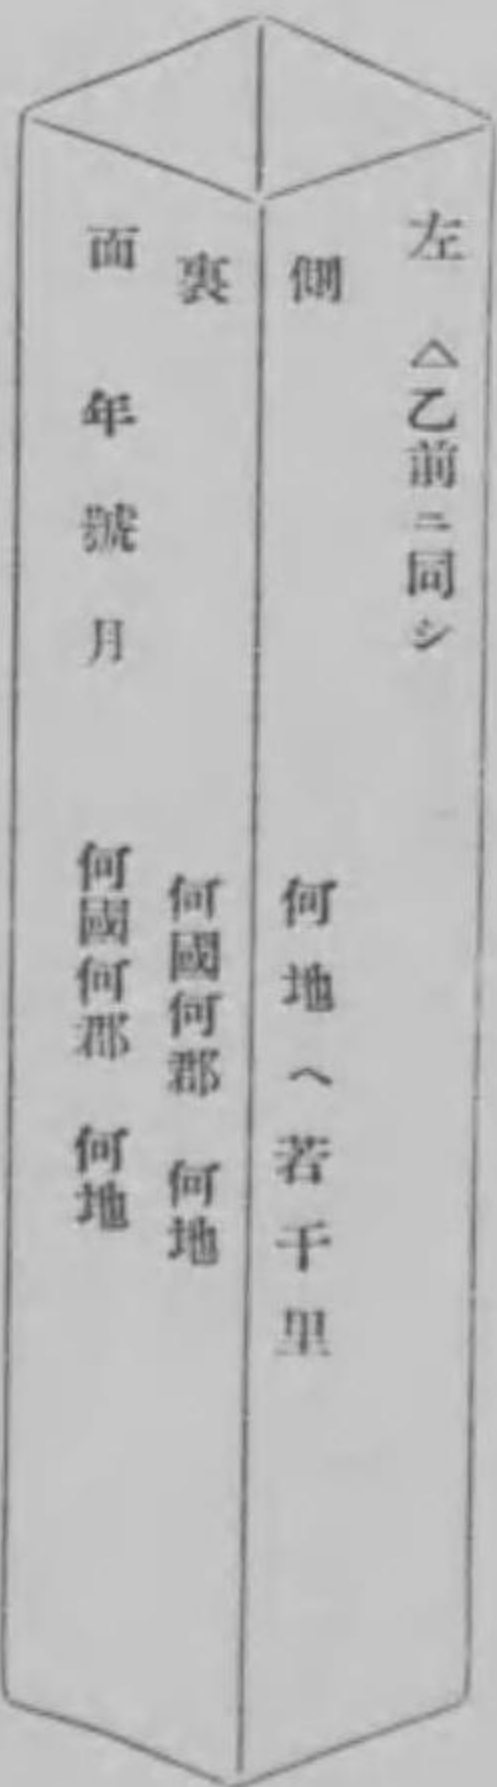 左　△乙前ニ同シ
側　何地ヘ若干里
裏　何國何郡　何地
面　年號月　何國何郡　何地